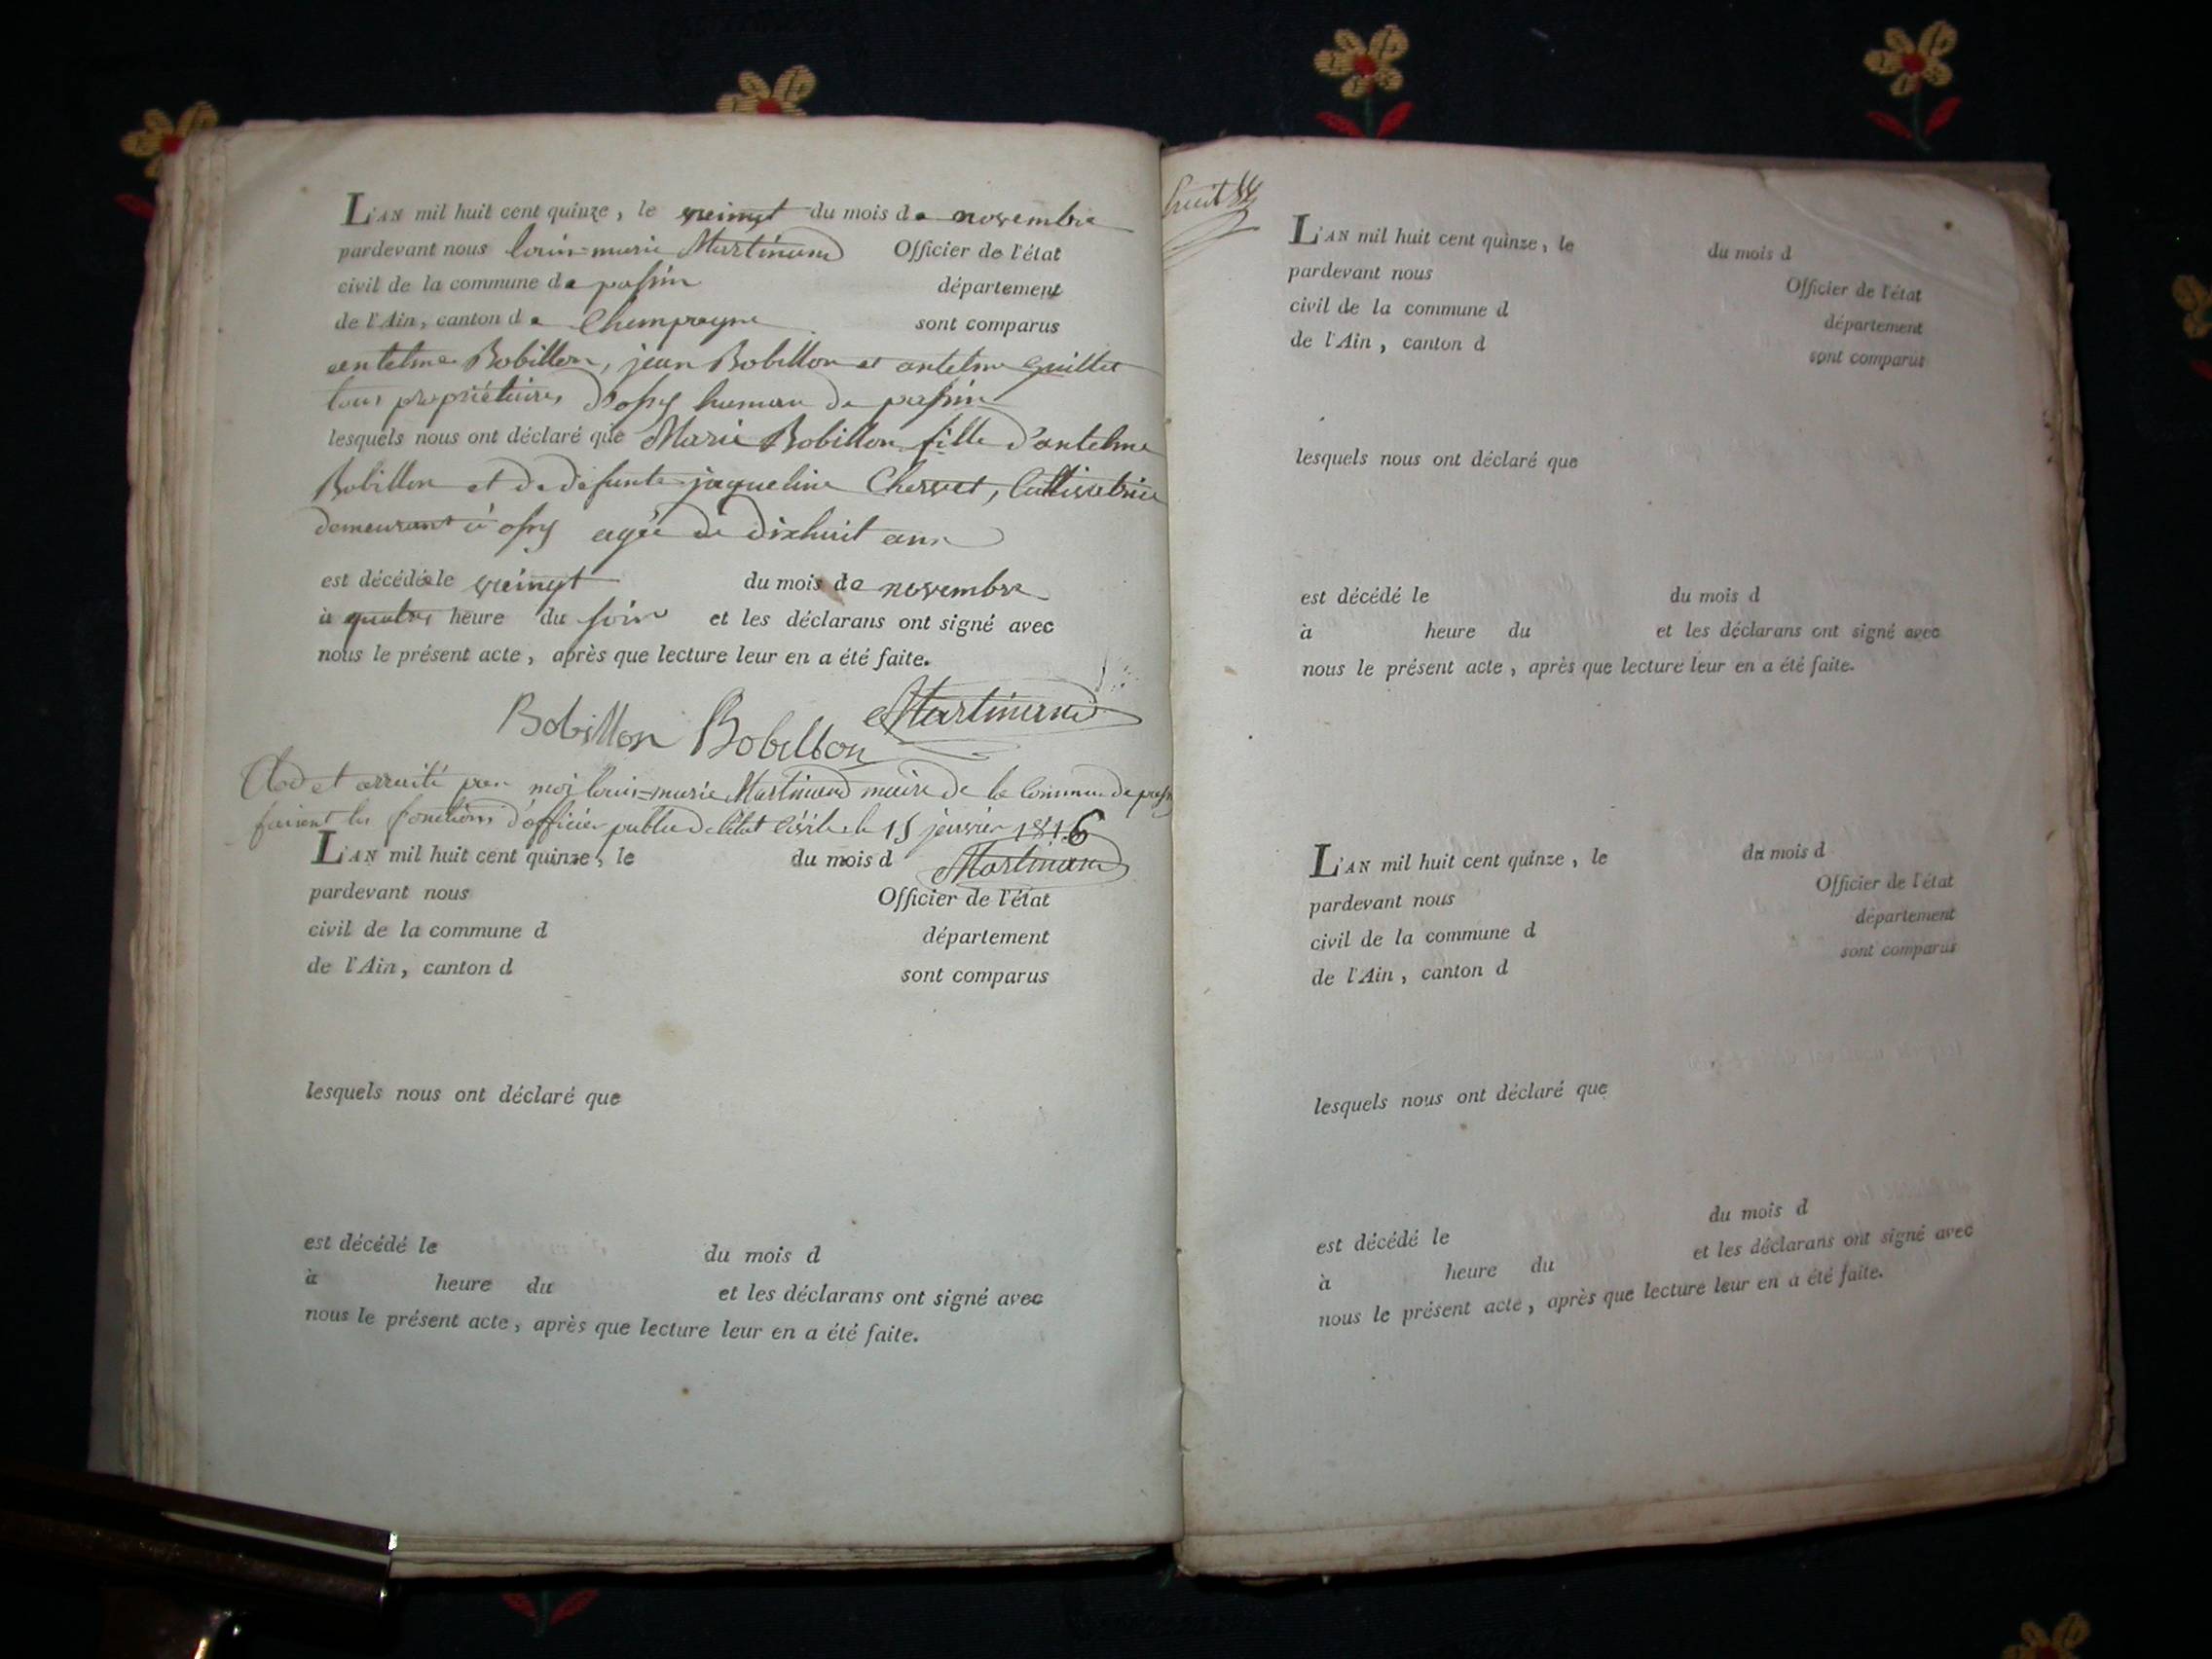 L'AN mil huit cent quinze, le veingt du mois de novembre
pardevant nous louis-marie Martinand Officier de l'état
civil de la commune de passin département
de l'Ain, canton de Champagne sont comparus
antelme Bobillon, jean Bobillon et antelme Guillet
tous propriétaires d'ossy hameau de passin
lesquels nous ont déclaré que Marie Bobillon fille d'antelme
Bobillon et de defunte jaqueline Chervet, Cultivatrice
demeurant à ossy agée de dixhuit ans
est décédée le veingt du mois de novembre
à quatre heure du soir et les déclarans ont signé avec
nous le présent acte, après que lecture leur en a été faite.
Bobillon Bobillon Martinand
Clos et arreité par moi louis-marie Martinand maire de la Commune de
faisant les fonctions d'officier public de l'état Civil le 15 janvier 1816
Martinand
L'AN mil huit cent quinze, le du mois d
pardevant nous Officier de l'état
civil de la commune d département
de l'Ain, canton d sont comparus
lesquels nous ont déclaré que
est décédé le du mois d
à heure du et les déclarans ont signé avec
nous le présent acte, après que lecture leur en a été faite.
huit
L'AN mil huit cent quinze, le du mois d
pardevant nous Officier de l'état
civil de la commune d département
de l'Ain, canton d sont comparus
lesquels nous ont déclaré que
est décédé le du mois d
à heure du et les déclarans ont signé avec
nous le présent acte, après que lecture leur en a été faite.
L'AN mil huit cent quinze, le du mois d
pardevant nous Officier de l'état
civil de la commune d département
de l'Ain, canton d sont comparus
lesquels nous ont déclaré que
est décédé le du mois d
à heure du et les déclarans ont signé avec
nous le présent acte, après que lecture leur en a été faite.